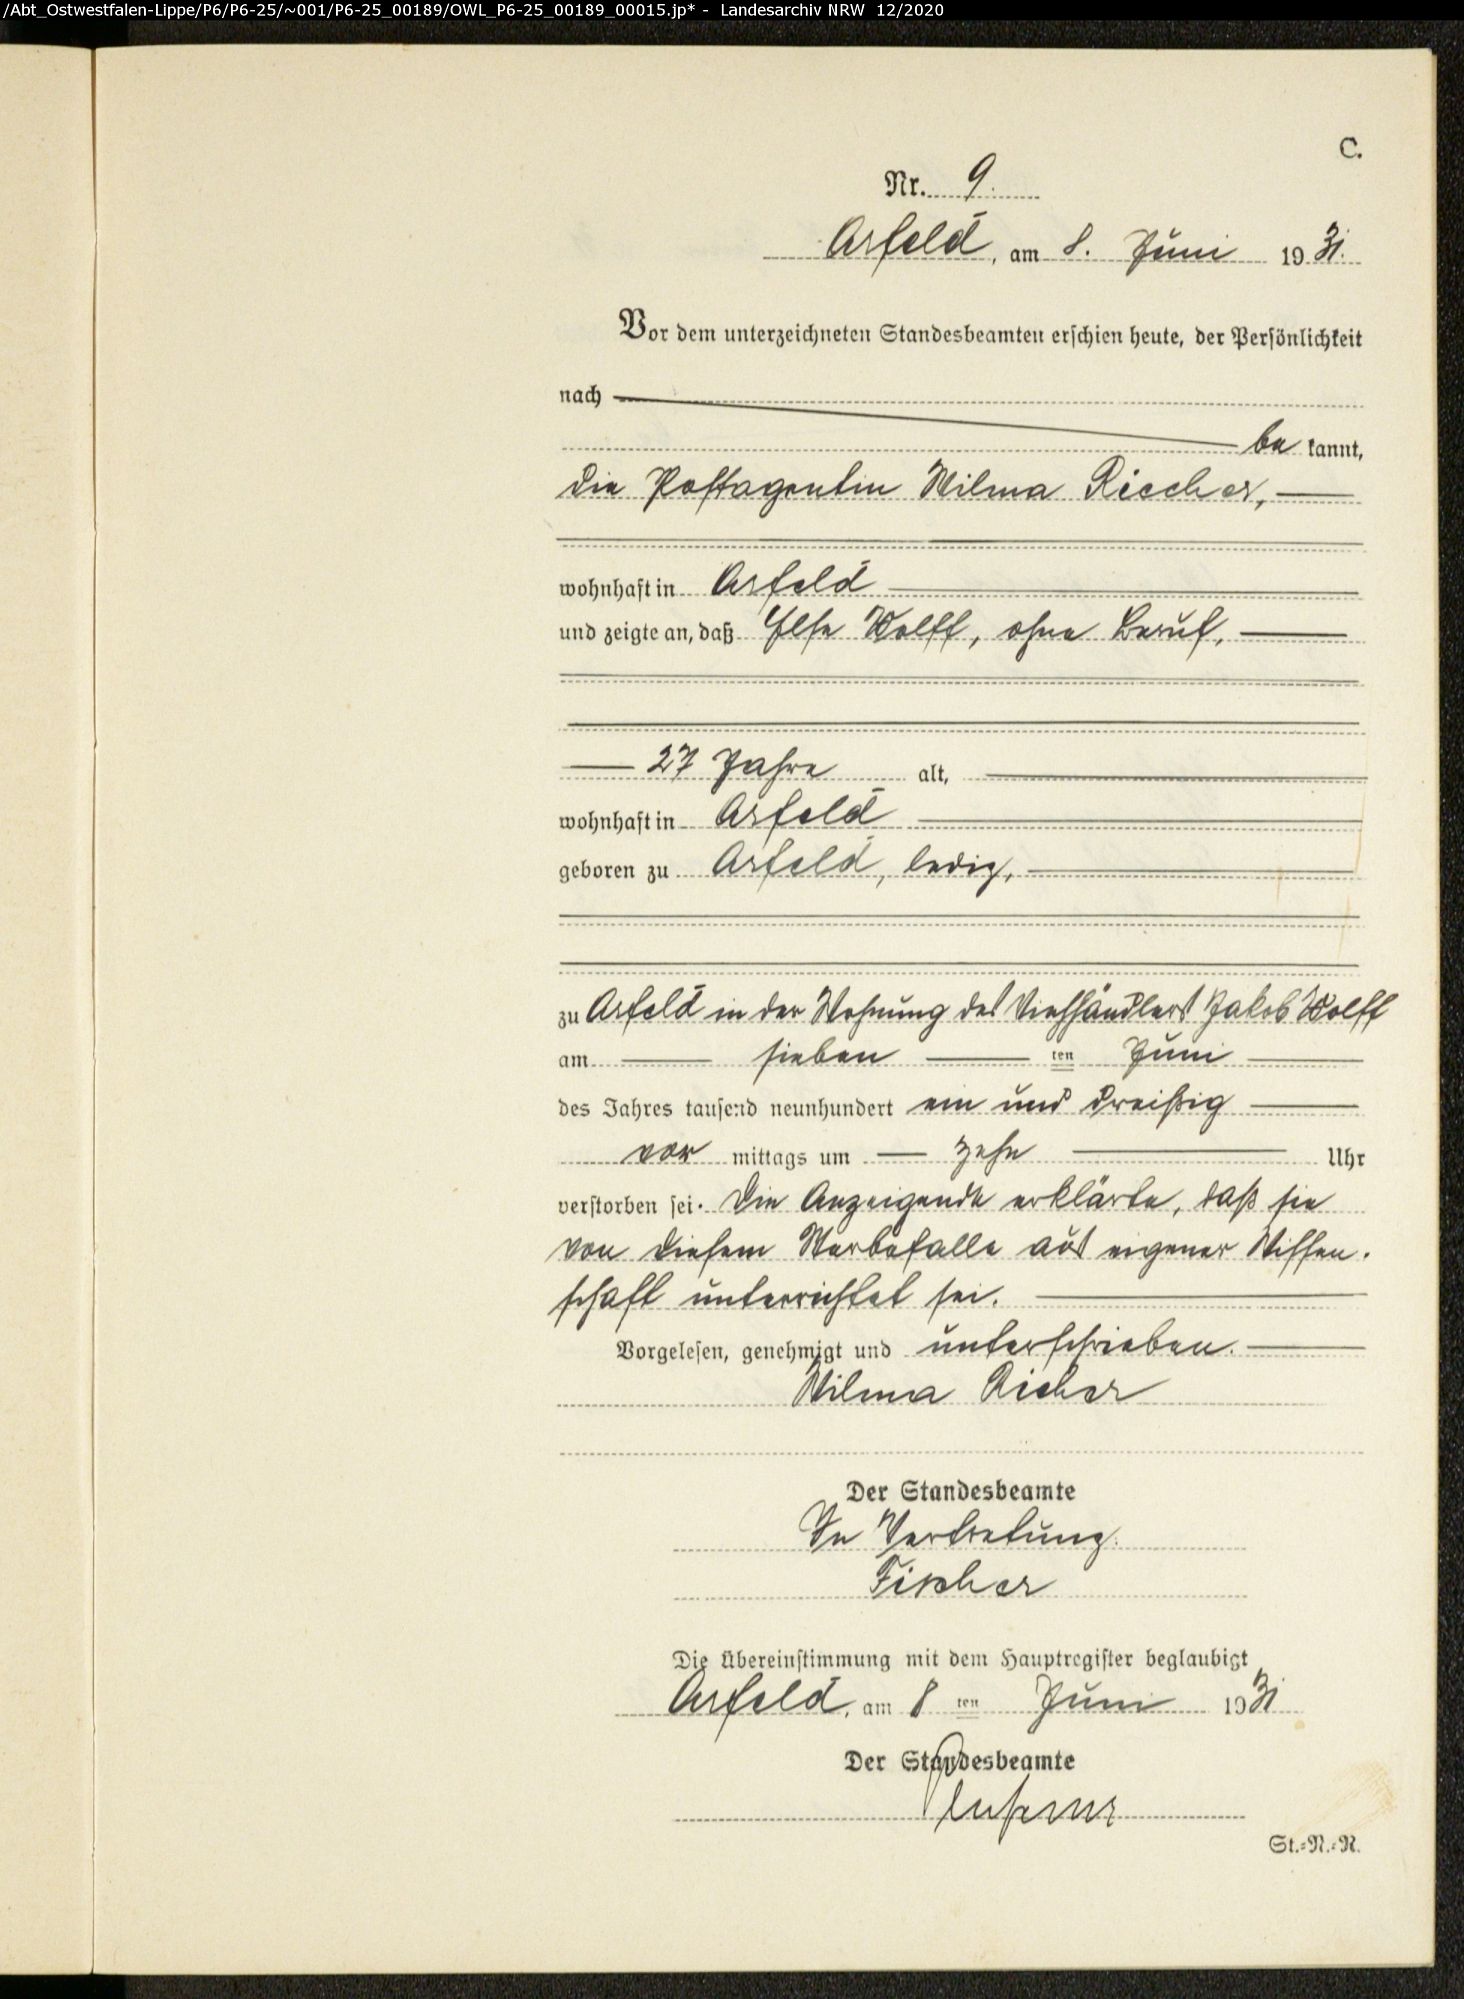 /Abt_Ostwestfalen-Lippe/P6/P6-25/~001/P6-25_00189/OWL_P6-25_00189_00015.jp* - Landesarchiv NRW 12/2020
C.
Nr. 9.
Arfeld, am 8. Juni 1931.
Vor dem unterzeichneten Standesbeamten erschien heute, der Persönlichkeit
nach
be kannt,
die Postagentin Wilma Riecher,
wohnhaft in Arfeld
und zeigte an, daß Else Wolff, ohne Beruf,
27 Jahre alt,
wohnhaft in Arfeld
geboren zu Arfeld, ledig,
zu Arfeld in der Wohnung des Viehhändlers Jakob Wolff
am sieben ten Juni
des Jahres tausend neunhundert ein und dreißig
vor mittags um zehn Uhr
verstorben sei. Die Anzeigende erklärte, daß sie
von diesem Sterbefalle aus eigener Wissen-
schaft unterrichtet sei.
Vorgelesen, genehmigt und unterschrieben.
Wilma Riecher
Der Standesbeamte
In Vertretung.
Fischer
Die Übereinstimmung mit dem Hauptregister beglaubigt
Arfeld, am 8 ten Juni 1931
Der Standesbeamte
St.=N.=N.